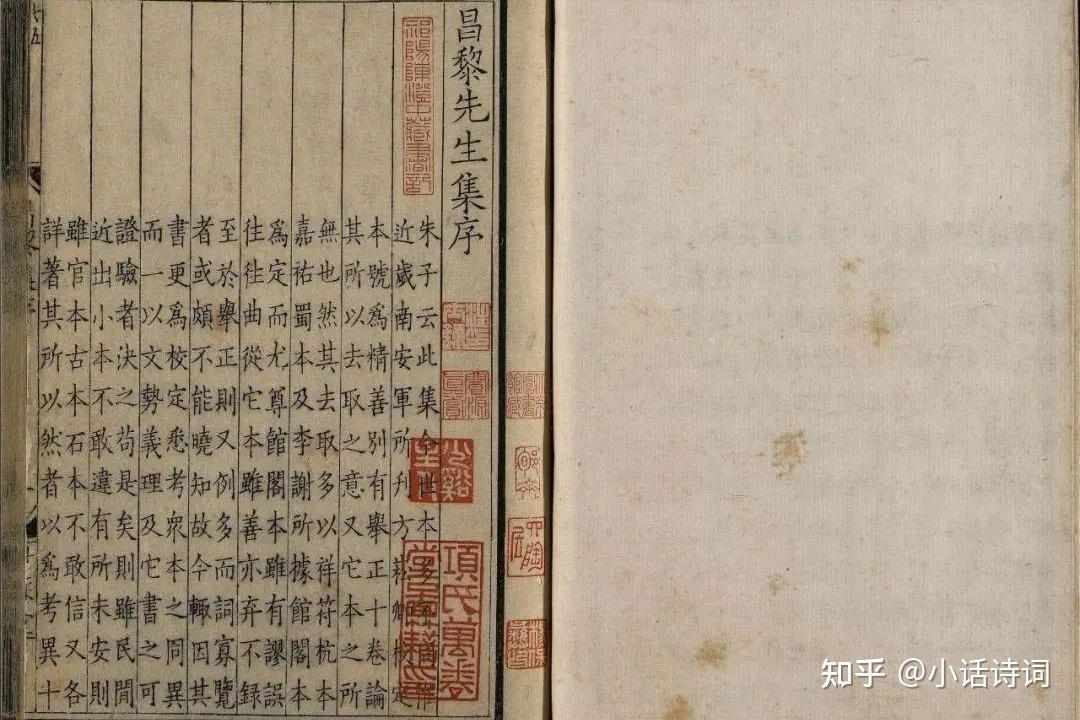 昌黎先生集序
祁陽陳澄中藏書記
朱子云此集今世本多
近歲南安軍所刊方崧卿校定
本號爲精善別有舉正十卷論
其所以去取之意又它本之所
無也然其去取多以祥符杭本
嘉祐蜀本及李謝所據館閣本
爲定而尤尊館閣本雖有謬誤
往往曲從它本雖善亦弃不錄
至於舉正則又例多而詞寡覽
者或頗不能曉知故今輒因其
書更爲校定悉考衆本之同異
而一以文勢義理及它書之可
證驗者決之苟是矣則雖民閒
近出小本不敢違有所未安則
雖官本古本石本不敢信又各
詳著其所以然者以爲考異十
項氏萬卷
堂圖籍印
知乎 @小话诗词